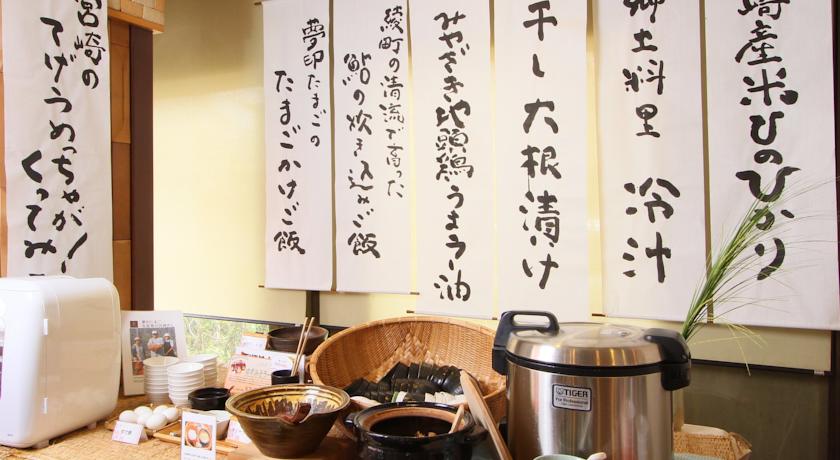 崎産米ひのひかり
郷土料理 冷汁
干し大根漬け
みやざき地頭鶏うまラー油
綾町の清流で育った
鮎の炊き込みご飯
夢印たまごの
たまごかけご飯
宮崎の
てげうめっちゃが!
くってみ
TIGER